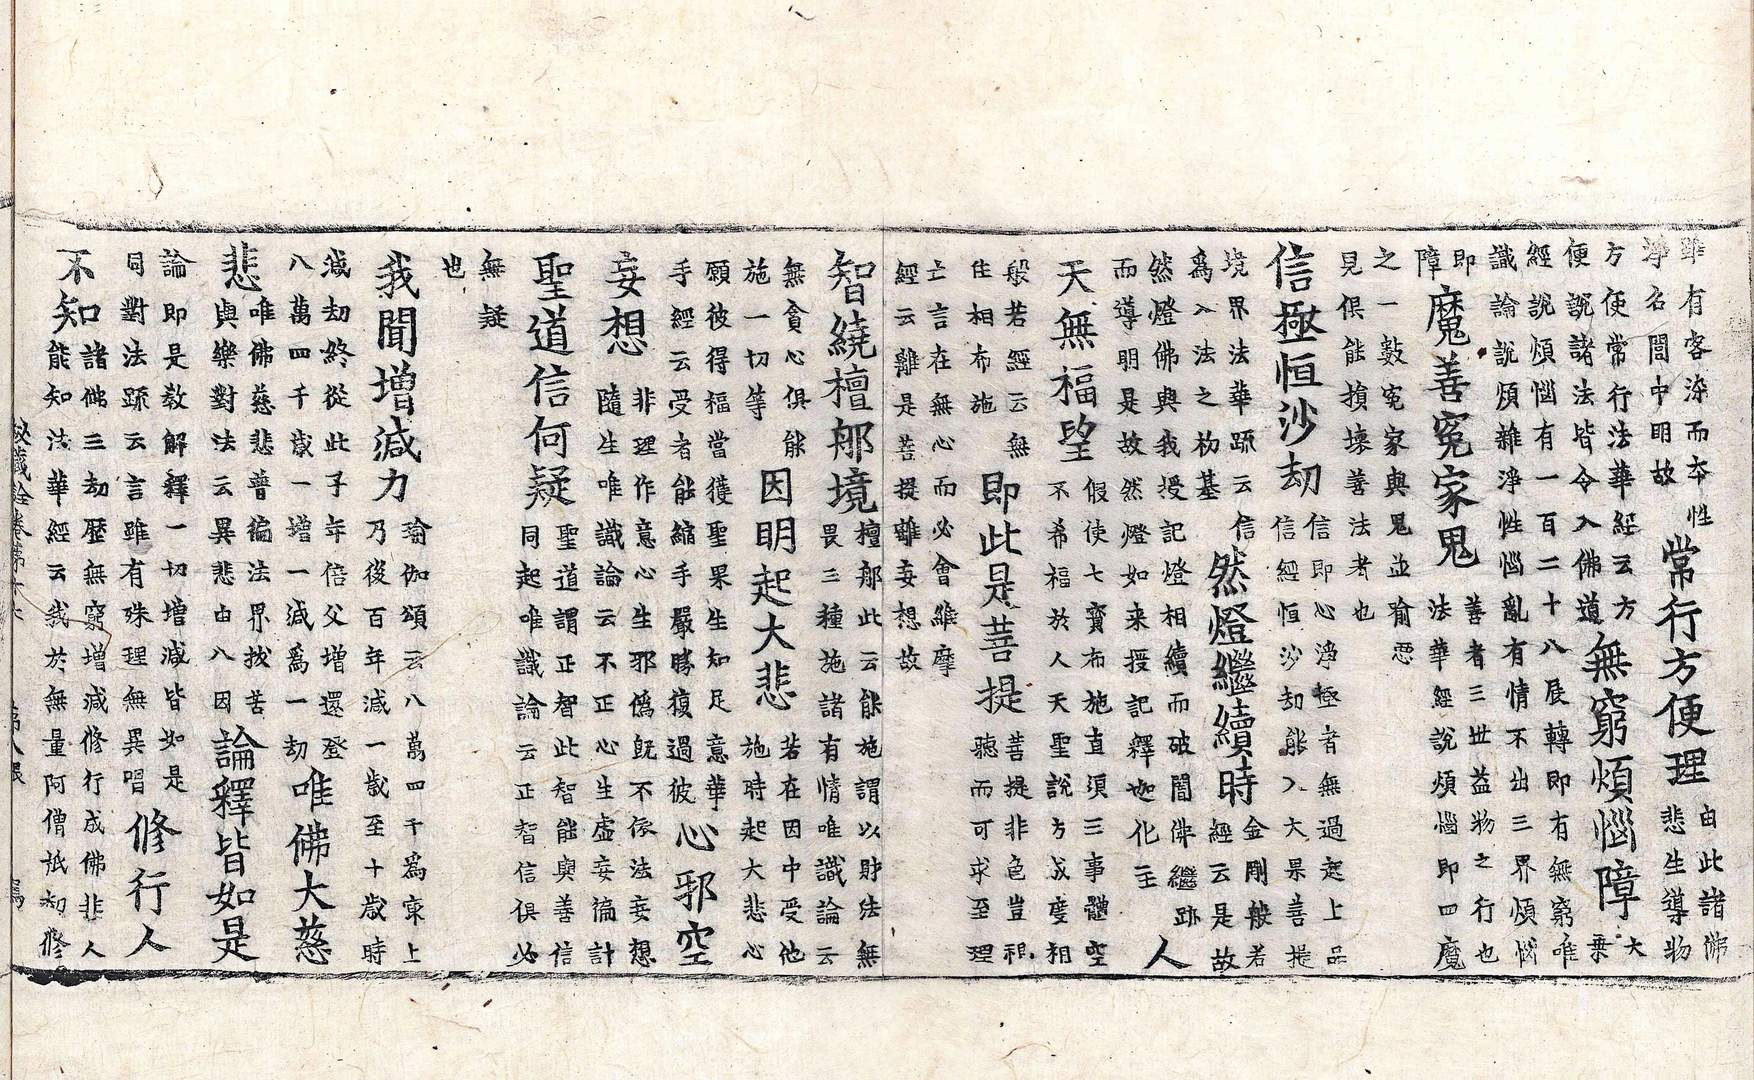 雖有客染而本性
淨名闇中明故
常行方便理
由此諸佛
悲生導物
方使常行法華經云方
便說諸法皆令入佛道
無窮煩惱障
大
乘
經說煩惱有一百二十八展轉即有無窮唯
識論說煩雜淨性惱亂有情不出三界煩惱
即
障
魔善冤家鬼
善者三世益物之行也
法華經說煩惱即四魔
之一數冤家與鬼並喻惡
見俱能損壞善法者也
信極恒沙劫
信即心淨極者無過起上品
信經恒沙劫能入大果菩提
境界法華䟽云信
為入法之初基
然燈繼續時
金剛般若
經云是故
然燈佛與我授記燈相續而破闇俳繼跡
而導明是故然燈如來授記釋迦化主
人
天無福望
假使七寶布施直須三事體空
不希福於人天聖說方成度相
般若經云無
住相布施
即此是菩提
菩提非色豈視
聽而可求至理
亡言在無心而必會維摩
經云離是菩提離妄想故
智繞檀那境
檀那此云能施謂以財法無
畏三種施諸有情唯識論云
無貪心俱能
施一切等
因明起大悲
若在因中受他
施時起大悲心
願彼得福當獲聖果生知足意華
手經云受者能縮手嚴勝復過彼
心邪空
妄想
非理作意心生邪僞旣不依法妄想
隨生唯識論云不正心生虛妄徧計
聖道信何疑
聖道謂正智此智能與善信
同起唯識論云正智信俱必
無疑
也
我聞增減力
瑜伽頌云八萬四千為㝡上
乃後百年減一歲至十歲時
減劫終從此子年倍父增還登
八萬四千歲一增一減為一劫
唯佛大慈
悲
唯佛慈悲普徧法界拔苦
與樂對法云異悲由八因
論釋皆如是
論即是教解釋一切增減皆如是
同對法䟽云言雖有殊理無異唱
修行人
不知
諸佛三劫歷無窮增減修行成佛非人
能知法華經云我於無量阿僧祇劫修
秘藏詮卷第十六
第八張